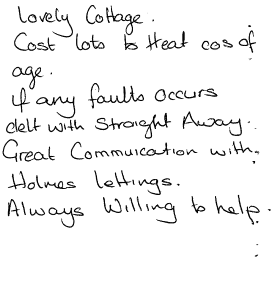 Lovely Cottage.
Cost lots to Heat cos of
age.
if any faults occurs
delt with Straight Away.
Great Commuication with.
Holmes lettings.
Always Willing to help.